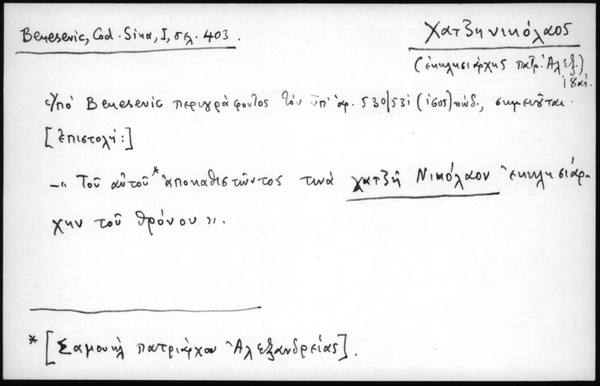 Benesevic, Cod. Sina, I, σελ. 403.
Χατζη νικόλαος
(ἐκκλησιάρχης πατρ. Ἀλεξ.)
18 αἰ.
Ὑπό Benesevic περιγράφοντος τόν ὑπ' ἀρ. 530/531 (ἰσος) κώδ., σημειοῦται
[ἐπιστολή:]
—" Τοῦ αὐτοῦ * ἀποκαθιστῶντος τινά χατζῆ Νικόλαον ἐκκλησιάρ-
χην τοῦ θρόνου ".
* [Σαμουήλ πατριάρχου Ἀλεξανδρείας].